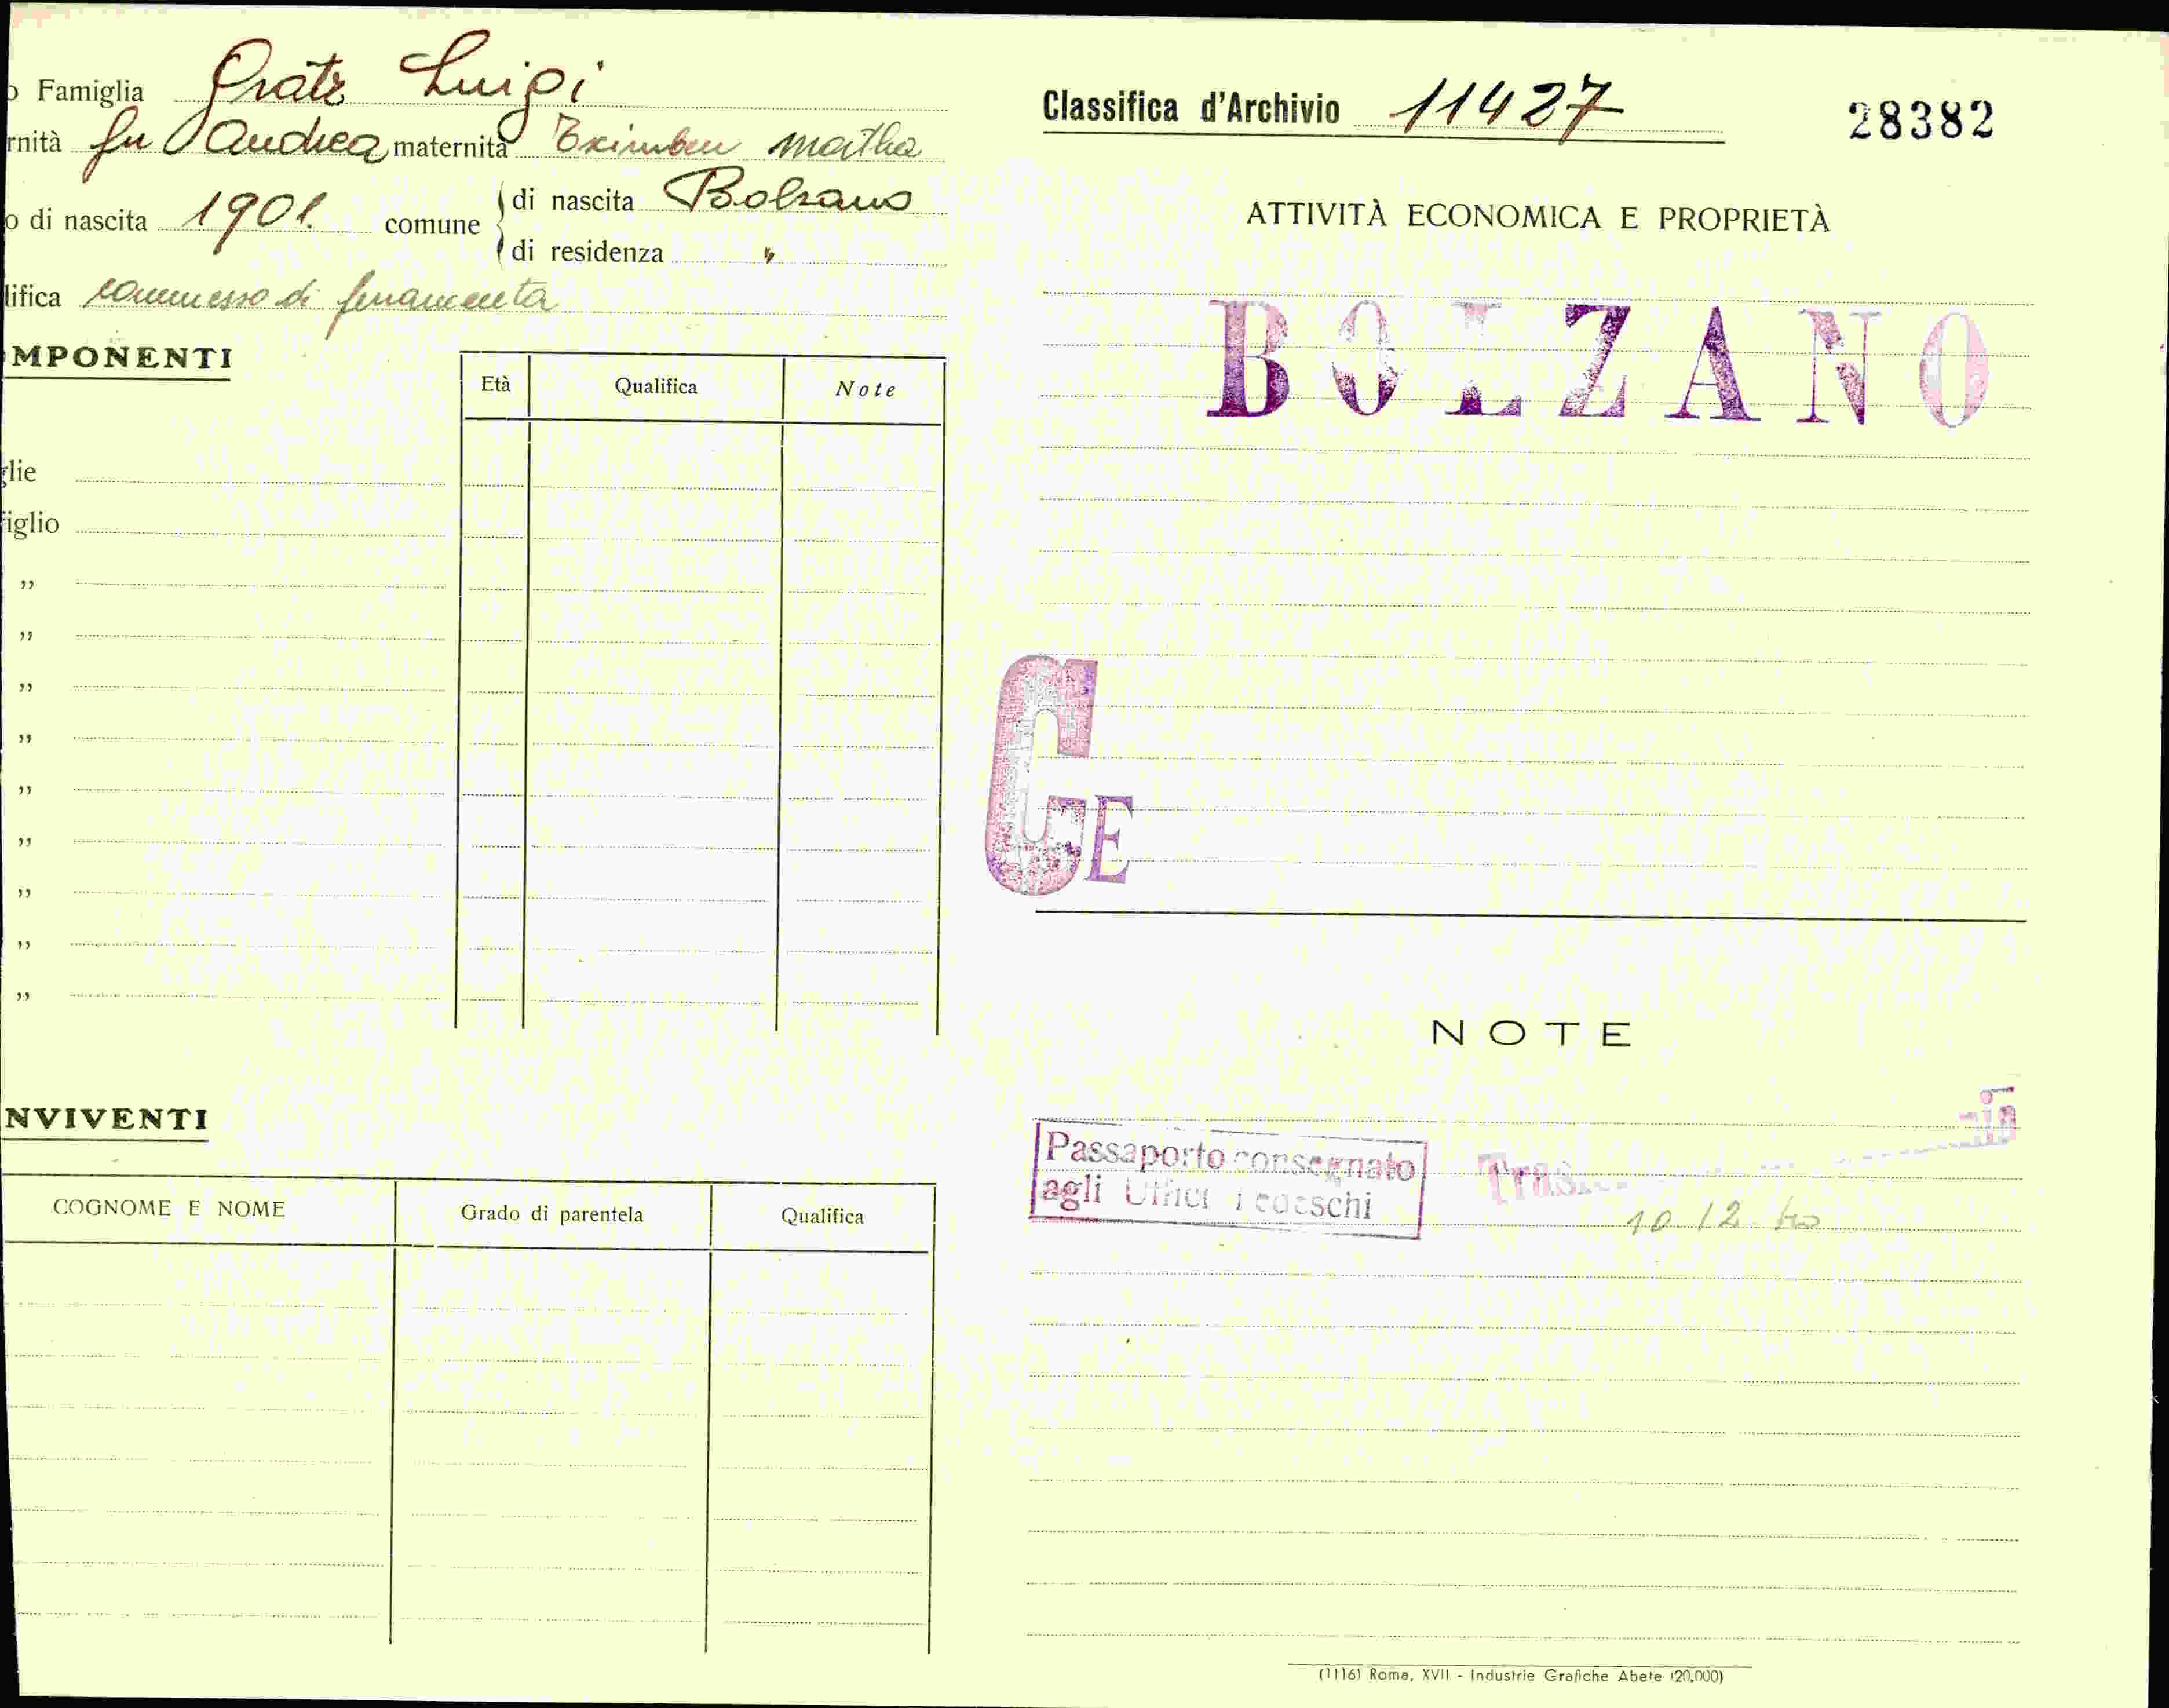 o Famiglia Gratz Luigi
rnità fu Andrea maternità Martha
o di nascita 1901. comune
di nascita Bolzano
di residenza "
lifica commesso di ferramenta
MPONENTI
Età Qualifica Note
glie
figlio
"
"
"
"
"
"
"
"
"
NVIVENTI
COGNOME E NOME Grado di parentela Qualifica
Classifica d'Archivio 11427
28382
ATTIVITÀ ECONOMICA E PROPRIETÀ
BOLZANO
CE
NOTE
Passaporto consegnato
agli Uffici Tedeschi
10 12 40
(1116) Roma, XVII - Industrie Grafiche Abete (20.000)